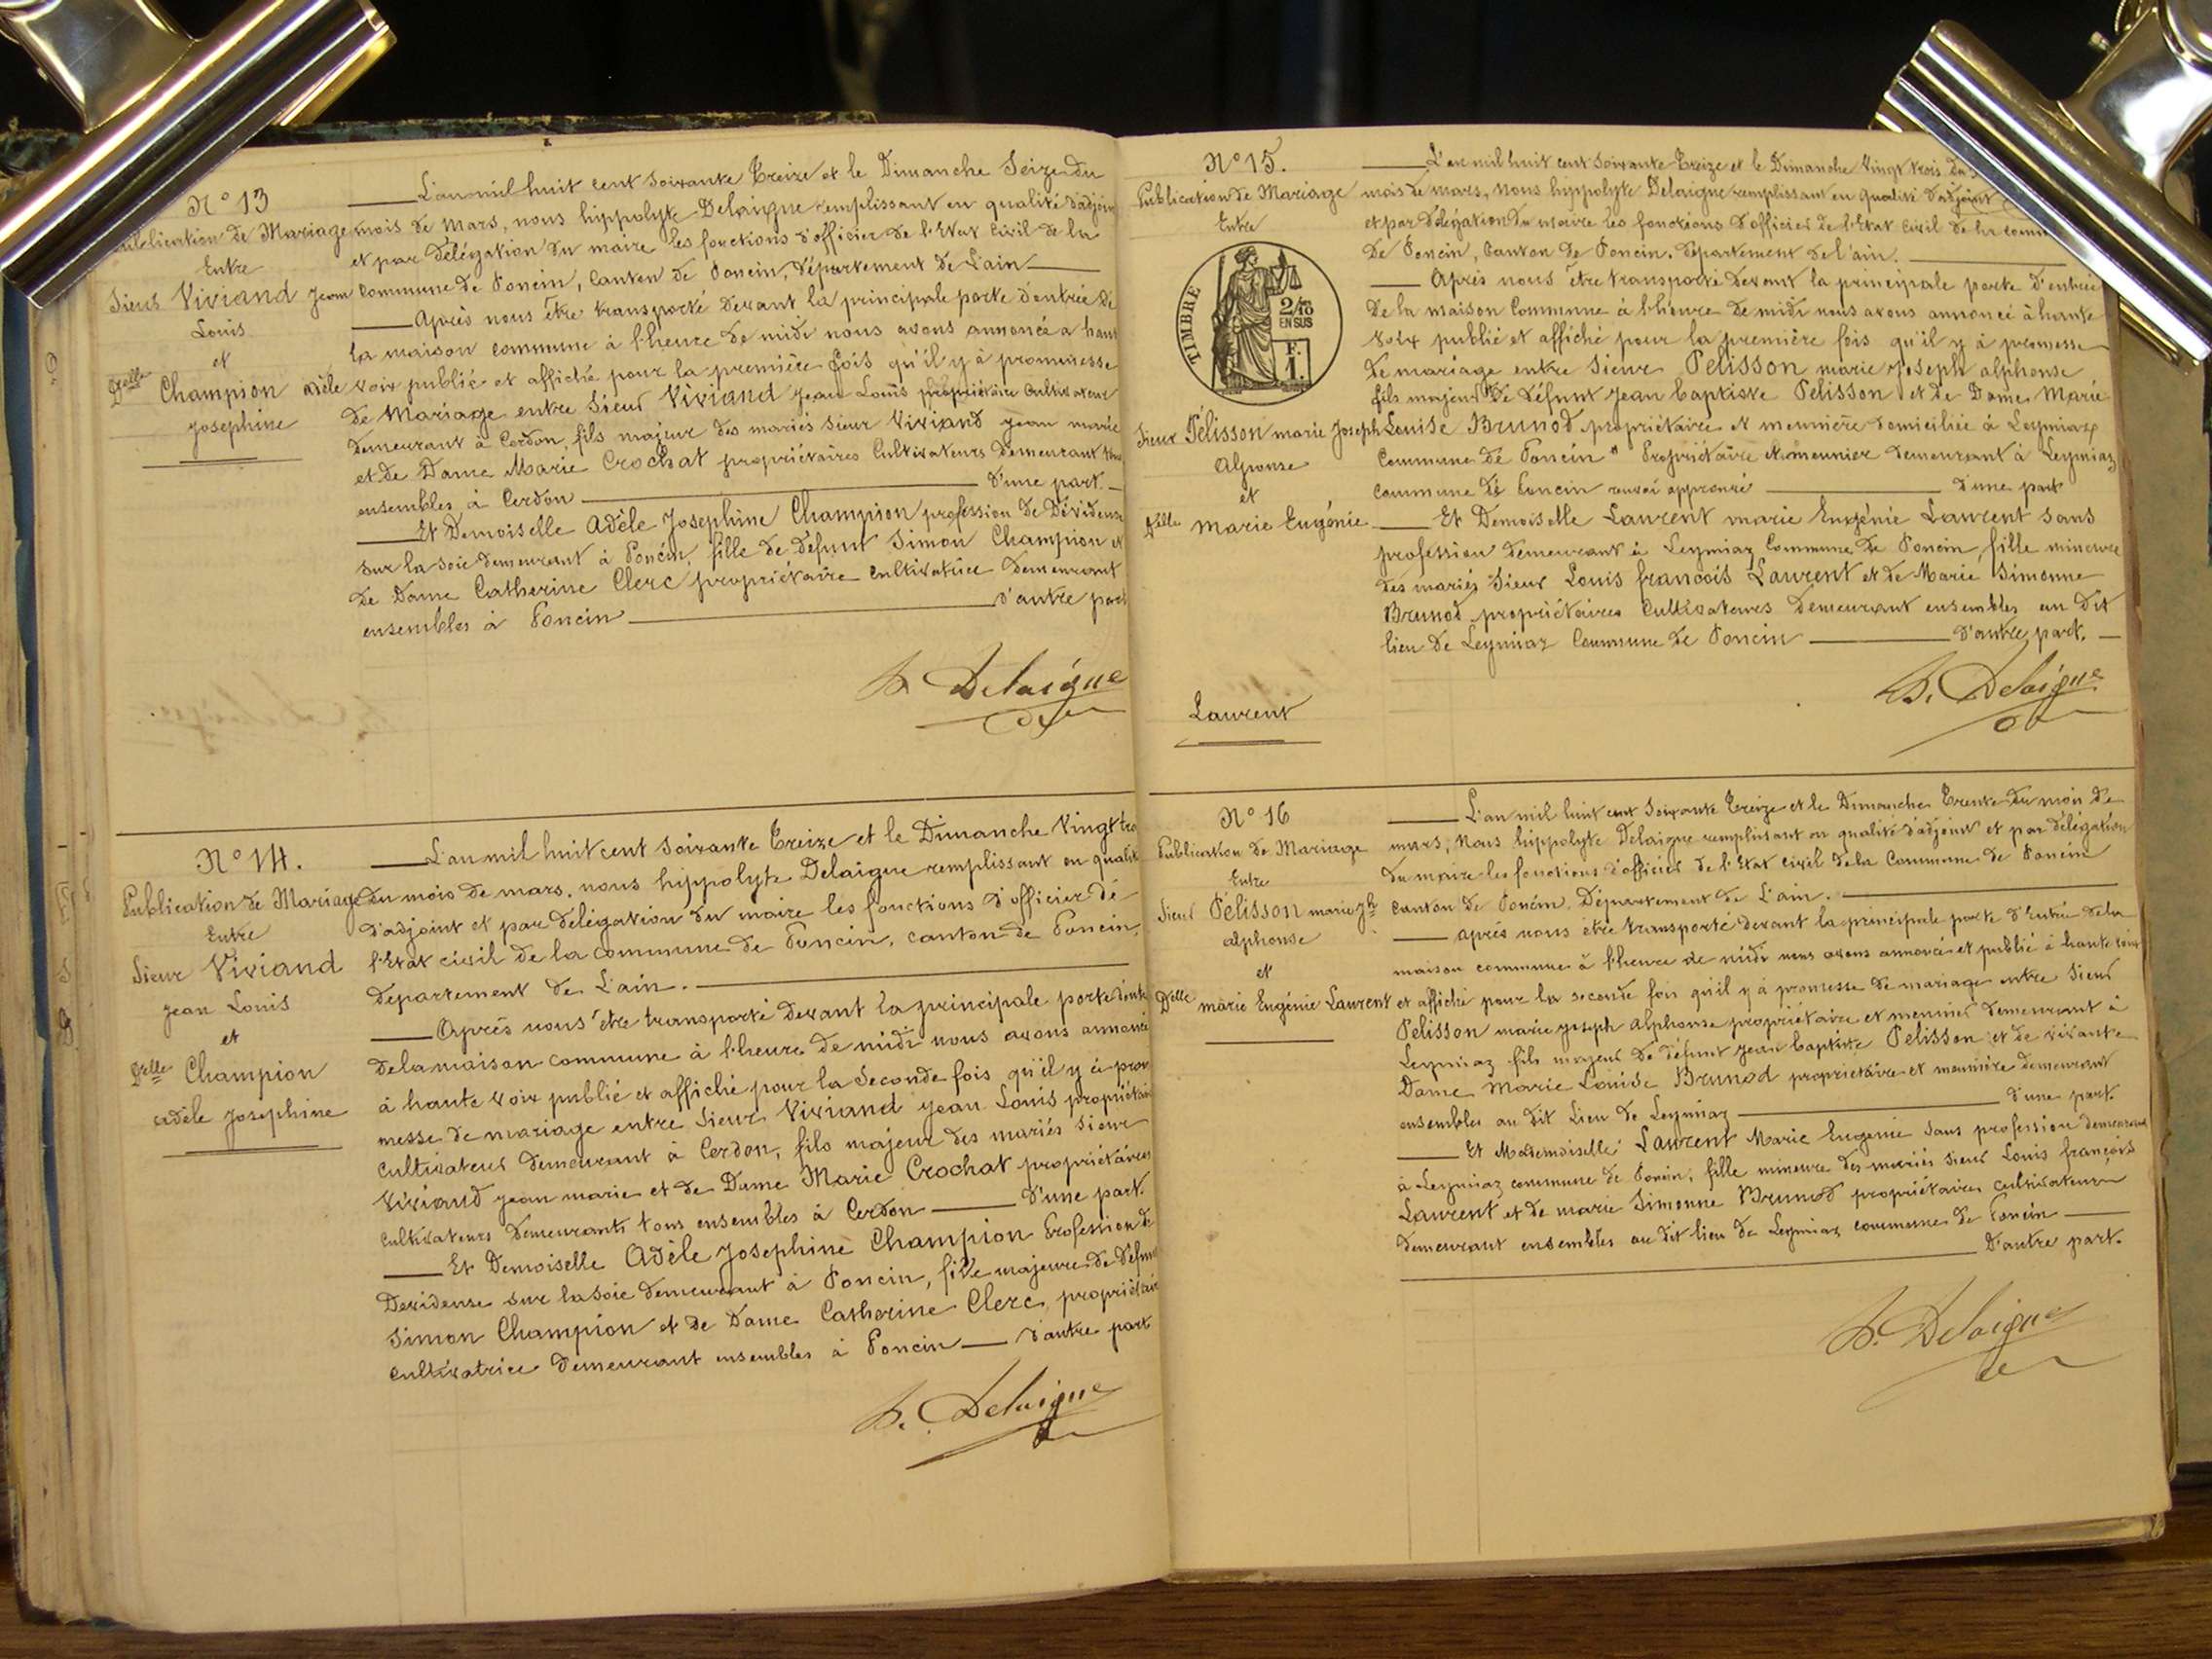 N° 13
Publication de Mariage
Entre
Sieur Viviand Jean
Louis
et
Delle Champion adèle
Josephine
L'an mil huit cent soixante Treize et le Dimanche Seize du
mois de Mars, nous hippolyte Delaigue remplissant en qualité d'adjoint
et par délégation du maire les fonctions d'officier de l'Etat Civil de la
Commune de Poncin, Canton de Poncin, Département de L'ain
Après nous être transporté devant la principale porte d'entrée de
la maison commune à l'heure de midi nous avons annoncé a haute
voix publié et affiché pour la première fois qu'il y à promesse
de Mariage entre Sieur Viviand Jean Louis propriétaire Cultivateur
demeurant à Cerdon, fils majeur des mariés Sieur Viviand Jean marie
et de Dame Marie Crochat propriétaires Cultivateurs Demeurant tous
ensembles à Cerdon d'une part
Et Demoiselle Adèle Josephine Champion profession de Dévideuse
sur la soie demeurant à Poncin, fille de défunt Simon Champion et
de Dame Catherine Clerc propriétaire cultivatrice demeurant
ensembles à Poncin d'autre part
h. Delaigue
N° 14.
Publication de Mariage
Entre
Sieur Viviand
Jean Louis
et
Delle Champion
adèle Josephine
L'an mil huit cent soixante Treize et le Dimanche Vingt trois
du mois de mars, nous hippolyte Delaigue remplissant en qualité
d'adjoint et par délégation du maire les fonctions d'officier de
l'Etat civil de la commune de Poncin, canton de Poncin,
département de L'ain.
Après nous être transporté devant la principale porte d'entrée
de la maison commune à l'heure de midi nous avons annoncé
à haute voix publié et affiché pour la Seconde fois qu'il y à pro
messe de mariage entre Sieur Viviand Jean Louis propriétaire
cultivateur demeurant à Cerdon, fils majeur des mariés Sieur
Viviand Jean marie et de Dame Marie Crochat propriétaires
Cultivateurs demeurants tous ensembles à Cerdon d'une part.
Et Demoiselle Adèle Josephine Champion Profession de
Devideuse sur la soie demeurant à Poncin, fille majeure de défunt
Simon Champion et de Dame Catherine Clerc, propriétaire
Cultivatrice demeurant ensembles à Poncin d'autre part
h. Delaigue
N° 15.
Publication de Mariage
Entre
TIMBRE
2/10
EN SUS
F.
1.
Sieur Pélisson marie Joseph
Alponse
et
Delle marie Eugénie
Laurent
L'an mil huit cent soixante Treize et le Dimanche Vingt trois du
mois de mars, nous hippolyte Delaigne remplissant en qualité d'adjoint
et par délégation du maire les fonctions d'officier de l'Etat civil de la comm
de Poncin, Canton de Poncin. Département de l'ain.
Après nous être transporté devant la principale porte d'entrée
de la maison Commune à l'heure de midi nous avons annoncé à haute
voix publié et affiché pour la première fois qu'il y à promesse
de mariage entre Sieur Pelisson marie Joseph alphonse
fils majeur de défunt Jean baptiste Pelisson et de Dame Marie
Louise Brunod propriétaire et meunière domiciliée à Leymiaz
Commune de Poncin " Propriétaire et meunier demeurant à Leymiaz
Commune de Poncin renvoi approuvé d'une part
Et Demoiselle Laurent marie Eugénie Laurent sans
profession demeurant à Leymiaz Commune de Poncin, fille mineure
des mariés Sieur Louis francois Laurent et de Marie Simonne
Brunod propriétaires Cultivateurs demeurant ensembles au Dit
lieu de Leymiaz Commune de Poncin d'autre part.
h. Delaigue
N° 16
Publication de Mariage
Entre
Sieur Pélisson marie Jh
alphonse
et
Delle marie Eugénie Laurent
L'an mil huit cent soixante Treize et le Dimanche Trente du mois de
mars; Nous hippolyte Delaigue remplissant en qualité d'adjoint et par délégation
du maire les fonctions d'officier de l'Etat civil de la Commune de Poncin
Canton de Poncin, Département de L'ain.
après nous être transporté devant la principale porte d'Entrée de la
maison commune à l'heure de midi nous avons annoncé et publié à haute voix
et affiché pour la seconde fois qu'il y à promesse de mariage entre Sieur
Pelisson marie joseph alphonse propriétaire et meunier demeurant à
Leymiaz fils majeur de défunt Jean baptiste Pelisson et de vivante
Dame Marie Louise Brunod propriétaire et meunière demeurant
ensembles au dit Lieu de Leymiaz d'une part.
Et Mademoiselle Laurent Marie Eugénie sans profession demeurant
à Leymiaz commune de Poncin, fille mineure des mariés Sieur Louis françois
Laurent et de marie Simonne Brunod propriétaires cultivateurs
demeurant ensembles au dit lieu de Leymiaz commune de Poncin
D'autre part.
h. Delaigue